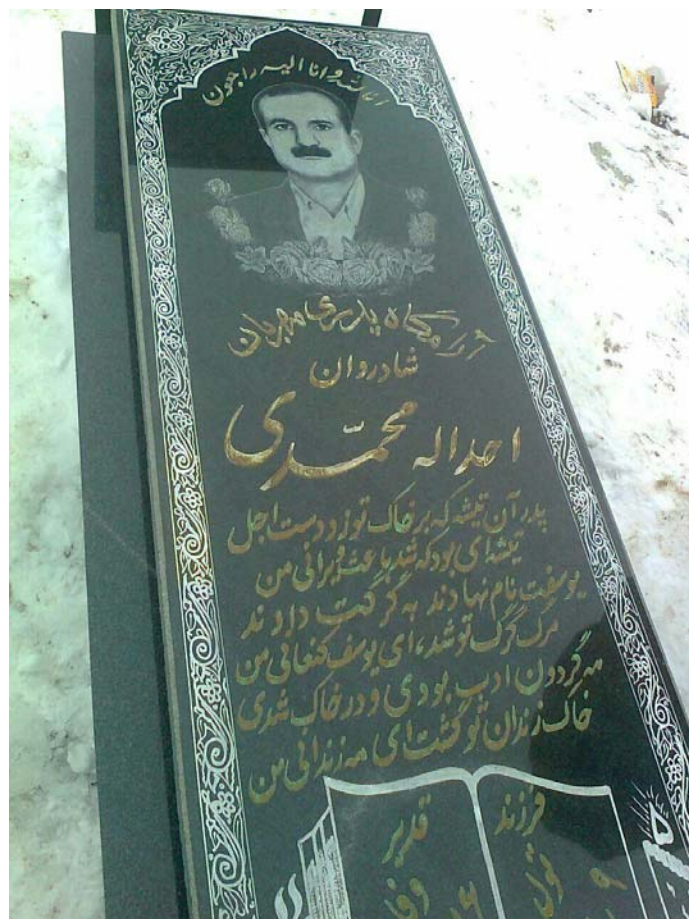 انا لله و انا الیه راجعون
آرامگاه پدری مهربان
شادروان
احداله محمّدی
پدر آن تیشه که بر خاک تو زد دست اجل
تیشه ای بود که شد باعث ویرانی من
یوسفت نام نهادند به گرگت دادند
مرگ گرگ تو شد، ای یوسف کنعانی من
مه گردون ادب بودی و در خاک شدی
خاک زندان تو گشت ای مه زندانی من
فرزند
قدیر